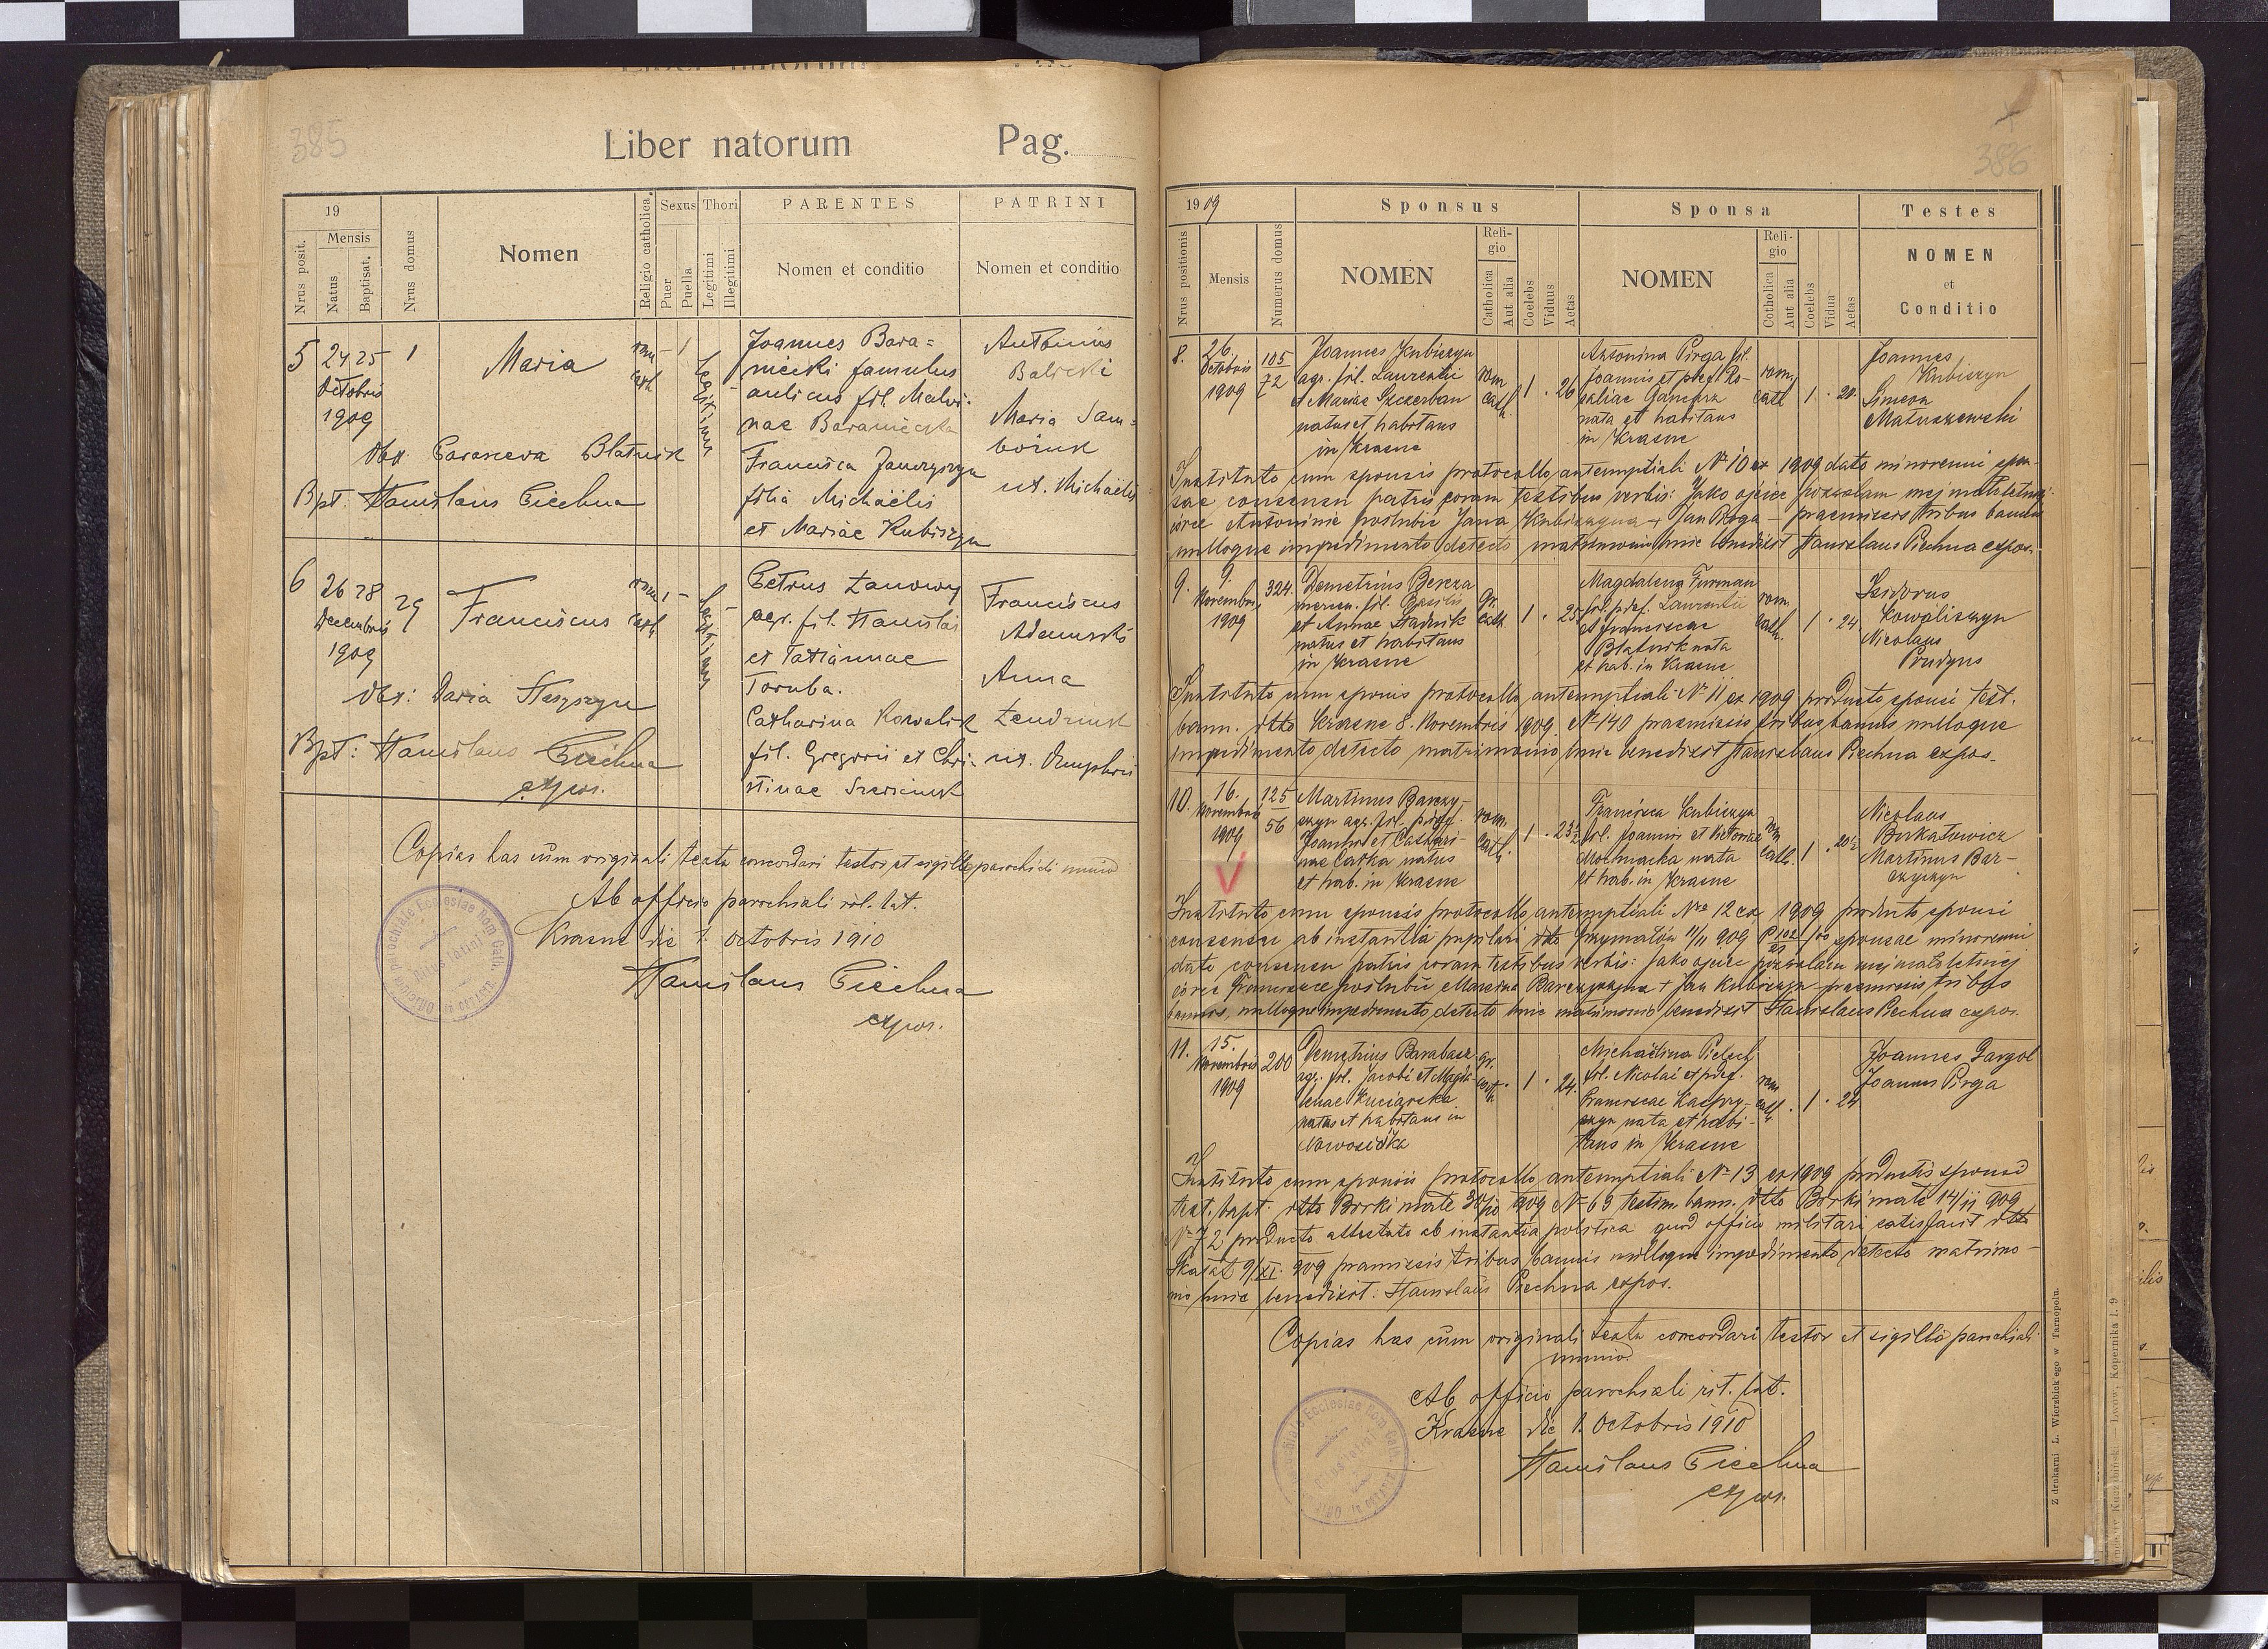 385
Liber natorum Pag.
19
Mensis
Nrus posit.
Natus
Baptisat.
Nrus domus
Nomen
Religio catholica.
Sexus
Puer
Puella
Thori
Legitimi
Illegitimi
PARENTES
Nomen et conditio
PATRINI
Nomen et conditio
5 24 25 1 Maria rom. - 1
Octobris cath
1909
Legitimus
Obst. Parasceva Blatnik
Bpt. Stanislaus Piechna
Joannes Bara=
niecki famulus
aulicus fil. Malvi-
nae Baraniecka
Francisca Janczyszyn
filia Michaëlis
et Mariae Kubiszyn
Antonius
Balicki
Maria Sam=
ux. Michaëlis
6 26 28 29 Franciscus rom. 1 -
Decembris cath
1909
Legitimus
Obst: Daria
Bpt: Stanislaus Piechna
expos.
Petrus
agr. fil. Stanislai
et Tatiannae
Toruba.
Catharina Kowalik
fil. Gregorii et Chri-
stinae
Franciscus
Adamski
Anna
ux. Onuphrii
Copias has cum originali textu concordari testor et sigillo parochiali munio
Ab officio parochiali rit. lat.
Krasne die 1. Octobris 1910
Stanislaus Piechna
expos.
386
1909
Nrus positionis
Mensis
Numerus domus
Sponsus
NOMEN
Religio
Catholica
Aut alia
Coelebs
Viduus
Aetas
Sponsa
NOMEN
Religio
Catholica
Aut alia
Coelebs
Vidua
Aetas
Testes
NOMEN
et
Conditio
8. 26. Octobris 1909 105 72
Joannes Kubiszyn
agr. fil. Laurentii
et Mariae Szczerban
natus et habitans
in Krasne
rom cath. 1 · 26
Antonina Pirga fil.
Joannis et pdef. Ro-
saliae
nata et habitans
in Krasne
rom. cath 1 · 20
Joannes
Kubiszyn
Simeon
Matuszewski
Instituto cum sponsis protocollo antenuptiali № 10 ex 1909 dato minorenni spon-
sae consensu patris coram testibus verbis: Jako ojciec pozwalam mej małoletniej
córce Antoninie poślubić Jana Kubiszyna + Jan Pirga - praemissis tribus bannis
nulloque impedimento detecto matrimonio huic benedixit Stanislaus Piechna expos.
9. 9. Novembris 1909 324.
Demetrius Bereza
fil. Basilii
et Annae Stadnik
natus et habitans
in Krasne
gr. cath. 1 · 25
Magdalena Furman
fil. pdef. Laurentii
et Franciscae
Blatnik nata
et hab. in Krasne
rom. cath. 1 · 24
Isidorus
Kowaliszyn
Nicolaus
Prudyus
Instituto cum sponsis protocollo antenuptiali № 11 ex 1909 producto sponsi test.
bann. dtto Krasne 8. Novembris 1909 № 140 praemissis tribus bannis nulloque
impedimento detecto matrimonio huic benedixit Stanislaus Piechna expos.
10. 16. Novembris 1909 125 56
Martinus Barczy-
szyn agr. fil. pdef.
Joannis et Cathari-
nae natus
et hab. in Krasne
rom. cath. 1 · 23½
Francisca Kubiszyn
fil. Joannis et Victoriae
Mochnacka nata
et hab. in Krasne
rom cath. 1 · 20½
Nicolaus
Burkatowicz
Martinus Bar-
czyszyn
Instituto cum sponsis protocollo antenuptiali Nro 12 ex 1909 producto sponsi
consensu ab instantia pupilari dtto Grzymałów 11/11 909 sponsae minorenni
dato consensu patris coram testibus verbis: Jako ojciec pozwalam mej małoletniej
córce Franciszce poślubić Marcina Barczyszyna + Jan Kubiszyn - praemissis tribus
bannis, nulloque impedimento detecto huic matrimonio benedixit Stanislaus Piechna expos.
11. 15. Novembris 1909 200
Demetrius Barabasz
agr. fil. Jacobi et Magda-
lenae Kuciarska
natus et habitans in
Nowosiółka
gr. cath. 1 · 24.
Michaëlina Pielech
fil. Nicolai et pdef.
Franciscae Kacpry-
szyn nata et habi-
tans in Krasne
rom cath. 1 · 24
Joannes Gargol
Joannes Pirga
Instituto cum sponsis protocollo antenuptiali № 13 ex 1909 productis sponsi
test. bapt. dtto Borki małe 30/10 1909 № 69 testim. bann. dtto Borki małe 14/11 909
№ 72 producto attestato ab instantia politica quod officio militari satisfacit dtto
Skałat 9/XI. 909 praemissis tribus bannis nulloque impedimento detecto matrimo-
nio huic benedixit: Stanislaus Piechna expos.
Copias has cum originali textu concordari testor et sigillo parochiali
munio.
Ab officio parochiali rit. lat.
Krasne die 1. Octobris 1910
Stanislaus Piechna
expos.
Z drukarni L. Wierzbickiego w Tarnopolu.
Lwów, Kopernika l. 9